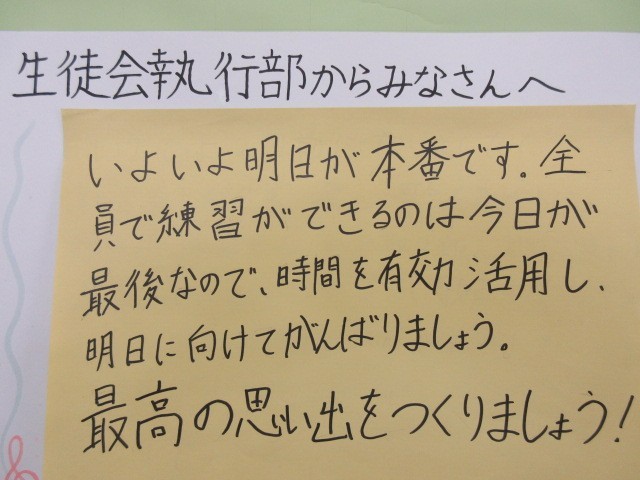 生徒会執行部からみなさんへ
いよいよ明日が本番です。全
員で練習ができるのは今日が
最後なので、時間を有効活用し、
明日に向けてがんばりましょう。
最高の思い出をつくりましょう!